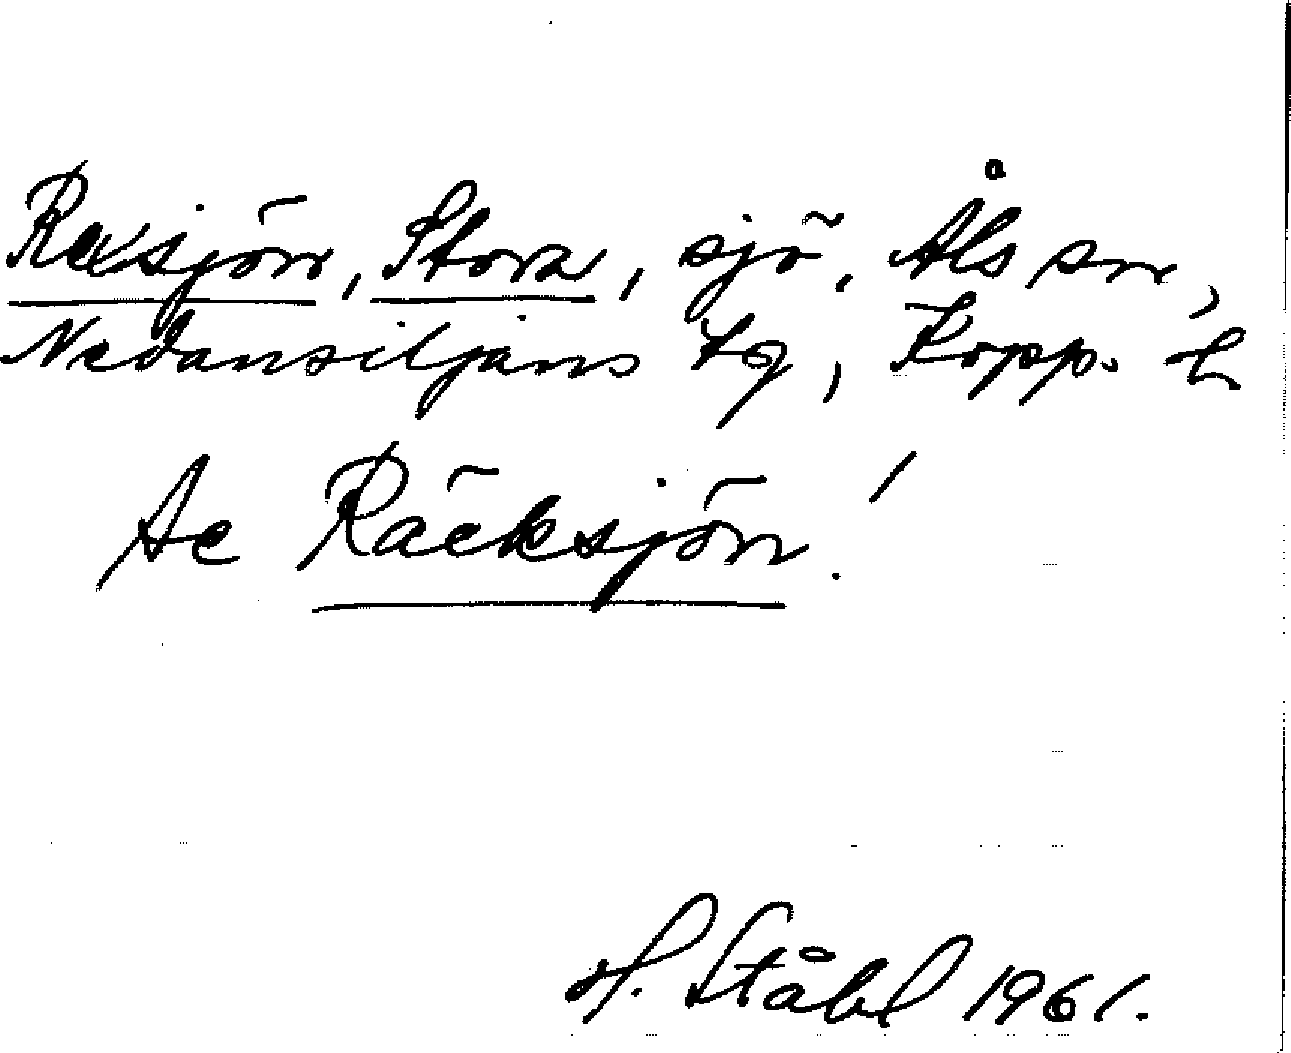 Rexsjön, Stora, sjö, Åls sn,
Nedansiljans tg, Kopp. l
Se Räcksjön!
H. Ståhl 1961.